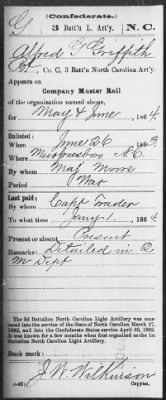 G
(Confederate.)
3 Batt'n L. Art'y.
N.C.
Alfred G Griffith
Pvt, Co. C, 3 Batt'n North Carolina Art'y.
Appears on
Company Muster Roll
of the organization named above,
for May & June, 1864.
Enlisted:
When June 26, 1863.
Where Murfreesboro N.C.
By whom Maj Moore
Period War
Last paid:
By whom Capt Trader
To what time Jany 1, 1864.
Present or absent Present
Remarks: Detailed in Q
M Dept
The 3d Battalion North Carolina Light Artillery was mus-
tered into the service of the State of North Carolina March 17,
1862, and into the Confederate States service April 25, 1862.
It was known for a few months when first organized as the 1st
Battalion North Carolina Light Artillery.
Book mark:
J.W. Wilkinson
(642)